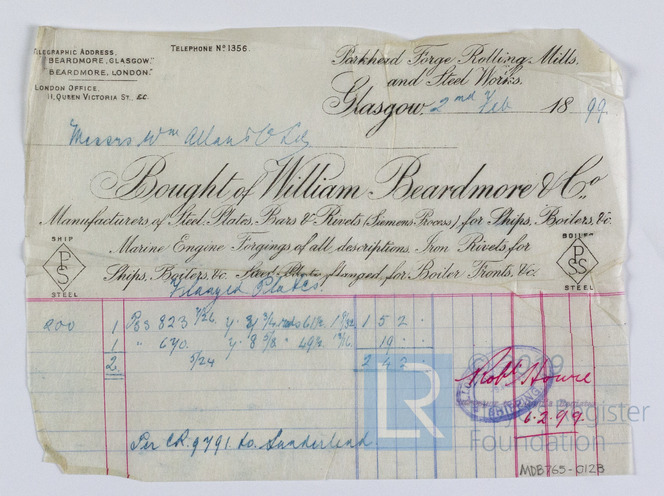 TELEGRAPHIC ADDRESS.
"BEARDMORE, GLASGOW."
"BEARDMORE, LONDON."
LONDON OFFICE.
11, QUEEN VICTORIA ST. E.C.
TELEPHONE No 1356.
Parkhead Forge Rolling Mills,
and Steel Works.
Glasgow, 2nd Feb 1899
Messrs Wm Allan & Co Ld
Bought of William Beardmore & Co.
Manufacturers of Steel Plates, Bars & Rivets (Siemens Process) for Ships, Boilers, &c.
Marine Engine Forgings of all descriptions, Iron Rivets for
Ships, Boilers, &c. Steel Plates flanged, for Boiler Fronts, &c.
SHIP
PSS
STEEL
BOILER
PSS
STEEL
Flanged Plates
200 1 823 1 5 2
1 " 670 19
2 5/24 2 4 2
Robt Howie
SHIPPING
6.2.99
Per C.R. 9791 to Sunderland
LR
Register
Foundation
MDB765-012B